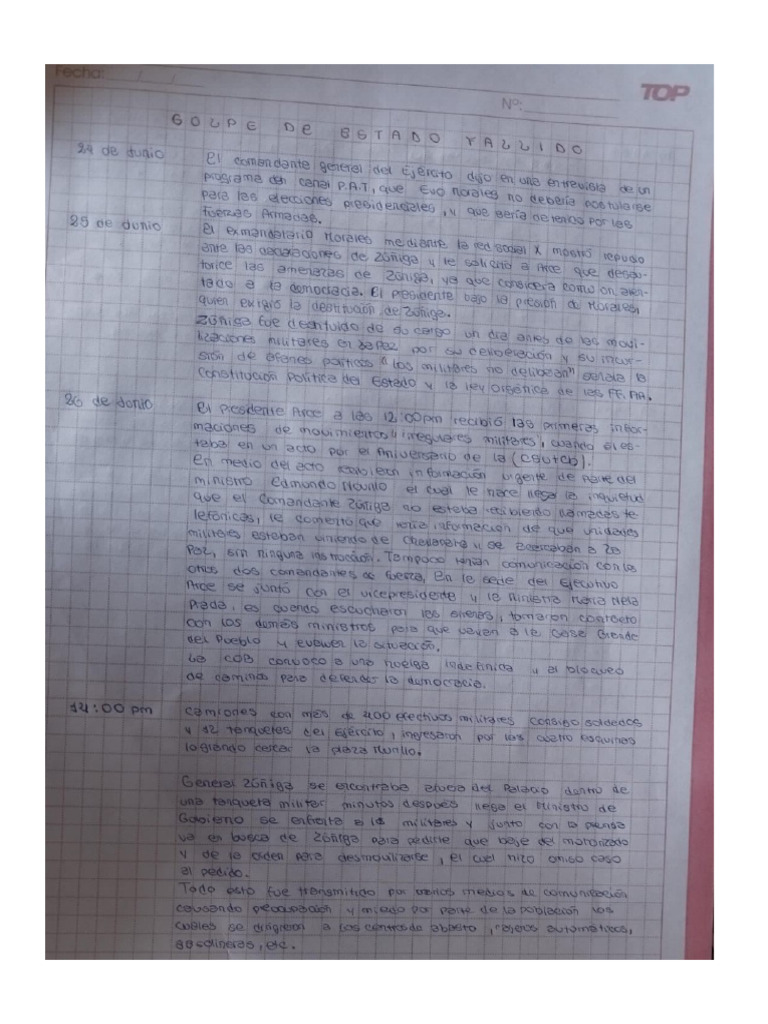 Fecha: / /
Nº:
TOP
GOLPE DE ESTADO FALLIDO
24 de Junio
El comandante general del Ejército dijo en una entrevista de un
programa del canal P.A.T, que Evo Morales no debería postularse
para las elecciones presidenciales, y que sería detenido por las
fuerzas Armadas.
25 de Junio
El exmandatario Morales mediante la red social X mostró repudio
ante las declaraciones de Zúñiga y le solicitó a Arce que desau-
torice las amenazas de Zúñiga, ya que considera como un aten-
tado a la democracia. El presidente bajo la presión de Morales,
quien exigió la destitución de Zúñiga.
Zúñiga fue destituido de su cargo un día antes de las movi-
lizaciones militares en La Paz por su deliberación y su incur-
sión de afanes políticos "los militares no deliberan" señala la
Constitución Política del Estado y la ley Orgánica de las FF.AA.
26 de Junio
El Presidente Arce a las 12:00pm recibió las primeras infor-
maciones de movimientos "irregulares militares", cuando él es-
taba en un acto por el Aniversario de la (CSUTCB).
En medio del acto información urgente de parte del
ministro Edmundo Novillo el cual le hace llegar la inquietud
que el Comandante Zúñiga no estaba recibiendo llamadas te-
lefónicas, le comentó que había información de que unidades
militares estaban viniendo de y se acercaban a La
Paz, sin ninguna instrucción. Tampoco tenían comunicación con los
otros dos comandantes de fuerza, En la sede del Ejecutivo
Arce se juntó con el vicepresidente y la Ministra María Nela
Prada, es quando escucharon las sirenas, tomaron contacto
con los demás ministros para que vayan a la Casa Grande
del Pueblo y evaluen la situación.
La COB convoco a una huelga indefinida y al bloqueo
de caminos para defender la democracia.
14:00 pm
Camiones con más de 400 efectivos militares consigo soldados
y 12 tanquetas del Ejército, ingresaron por las cuatro esquinas
logrando cercar la plaza Murillo.
General Zúñiga se encontraba afuera del Palacio dentro de
una tanqueta militar minutos después llega el Ministro de
Gobierno se enfrenta a los militares y junto con la prensa
va en busca de Zúñiga para pedirle que baje del motorizado
y de la orden para desmovilizarse, el cual hizo omiso caso
al pedido.
Todo esto fue transmitido por varios medios de comunicación
causando preocupación y miedo por parte de la población los
cuales se dirigieron a los centros de abasto, cajeros automáticos,
gasolineras, etc.